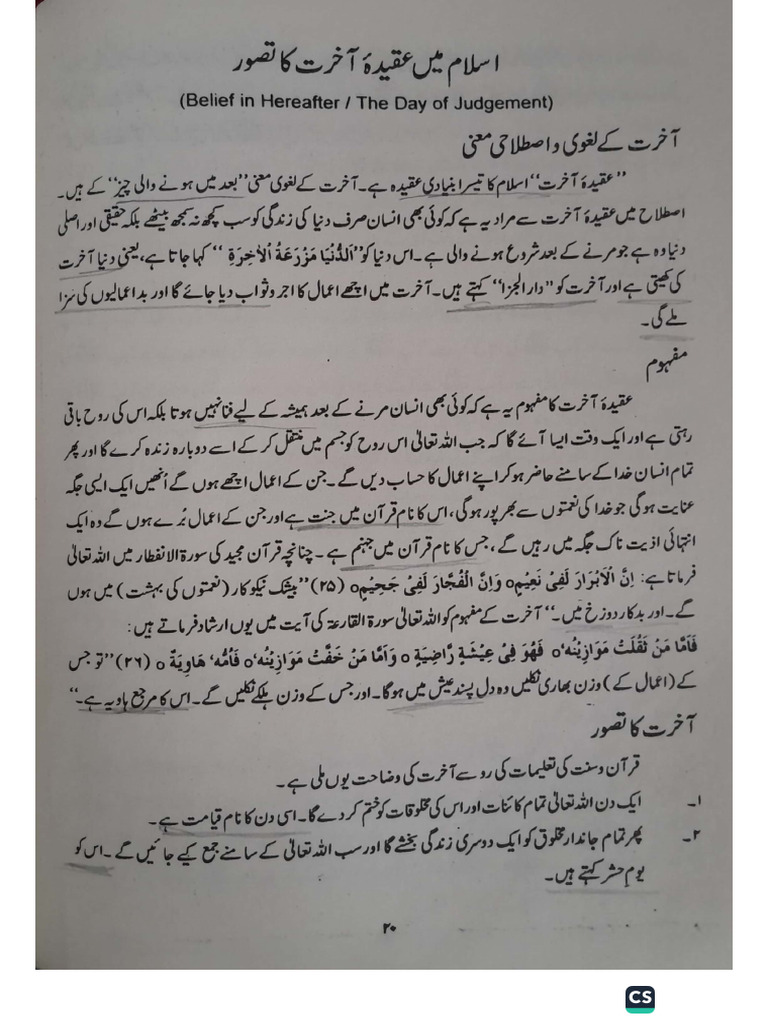 اسلام میں عقیدۂ آخرت کا تصور
(Belief in Hereafter / The Day of Judgement)
آخرت کے لغوی و اصطلاحی معنی
”عقیدۂ آخرت“ اسلام کا تیسرا بنیادی عقیدہ ہے۔ آخرت کے لغوی معنی ”بعد میں ہونے والی چیز“ کے ہیں۔
اصطلاح میں عقیدۂ آخرت سے مراد یہ ہے کہ کوئی بھی انسان صرف دنیا کی زندگی کو سب کچھ نہ سمجھ بیٹھے بلکہ حقیقی اور اصلی
دنیا وہ ہے جو مرنے کے بعد شروع ہونے والی ہے۔ اس دنیا کو ”اَلدُّنْیَا مَزْرَعَةُ الْاٰخِرَةِ“ کہا جاتا ہے، یعنی دنیا آخرت
کی کھیتی ہے اور آخرت کو ”دار الجزا“ کہتے ہیں۔ آخرت میں اچھے اعمال کا اجر و ثواب دیا جائے گا اور بد اعمالیوں کی سزا
ملے گی۔
مفہوم
عقیدۂ آخرت کا مفہوم یہ ہے کہ کوئی بھی انسان مرنے کے بعد ہمیشہ کے لیے فنا نہیں ہوتا بلکہ اس کی روح باقی
رہتی ہے اور ایک وقت ایسا آئے گا کہ جب اللہ تعالیٰ اس روح کو جسم میں منتقل کر کے اسے دوبارہ زندہ کرے گا اور پھر
تمام انسان خدا کے سامنے حاضر ہو کر اپنے اعمال کا حساب دیں گے۔ جن کے اعمال اچھے ہوں گے اُنھیں ایک ایسی جگہ
عنایت ہو گی جو خدا کی نعمتوں سے بھر پور ہو گی، اس کا نام قرآن میں جنت ہے اور جن کے اعمال بُرے ہوں گے وہ ایک
انتہائی اذیت ناک جگہ میں رہیں گے، جس کا نام قرآن میں جہنم ہے۔ چنانچہ قرآن مجید کی سورۃ الانفطار میں اللہ تعالیٰ
فرماتا ہے: اِنَّ الْاَبْرَارَ لَفِیْ نَعِیْمٍo وَاِنَّ الْفُجَّارَ لَفِیْ جَحِیْمٍo (۲۵) ”بیشک نیکو کار (نعمتوں کی بہشت) میں ہوں
گے۔ اور بدکار دوزخ میں۔“ آخرت کے مفہوم کو اللہ تعالیٰ سورۃ القارعۃ کی آیت میں یوں ارشاد فرماتے ہیں:
فَاَمَّا مَنْ ثَقُلَتْ مَوَازِیْنُهٗo فَهُوَ فِیْ عِیْشَةٍ رَّاضِیَةٍo وَاَمَّا مَنْ خَفَّتْ مَوَازِیْنُهٗo فَاُمُّهٗ هَاوِیَةٌo (۲۶) ”تو جس
کے (اعمال کے) وزن بھاری نکلیں وہ دل پسند عیش میں ہو گا۔ اور جس کے وزن ہلکے نکلیں گے۔ اس کا مرجع ہاویہ ہے۔“
آخرت کا تصور
قرآن و سنت کی تعلیمات کی رو سے آخرت کی وضاحت یوں ملی ہے۔
۱۔ ایک دن اللہ تعالیٰ تمام کائنات اور اس کی مخلوقات کو ختم کر دے گا۔ اسی دن کا نام قیامت ہے۔
۲۔ پھر تمام جاندار مخلوق کو ایک دوسری زندگی بخشے گا اور سب اللہ تعالیٰ کے سامنے جمع کیے جائیں گے۔ اس کو
یومِ حشر کہتے ہیں۔
۲۰
CS